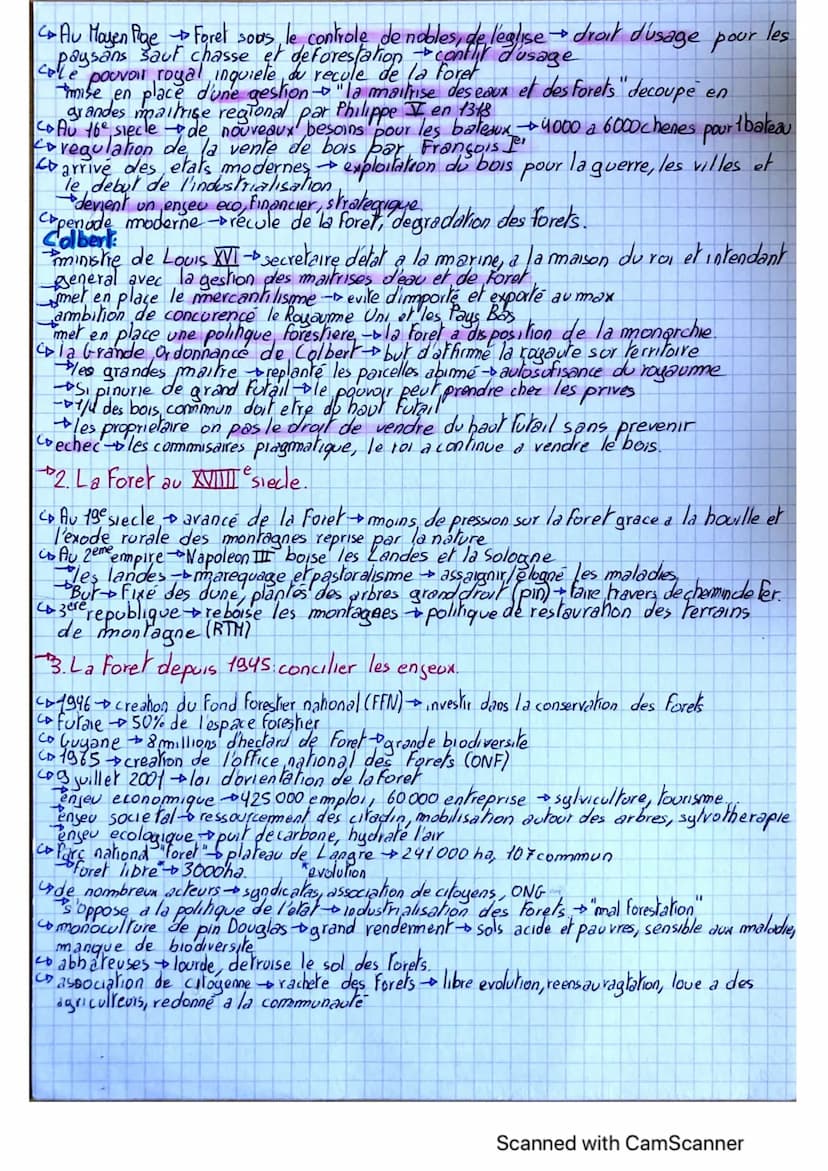 ↪ Au Moyen Age → Foret sous le controle de nobles, de l'eglise → droit d'usage pour les
paysans sauf chasse et deforestation → conflit d'usage
↪ le pouvoir royal inquiele du recule de la foret
→ mise en place d'une gestion → "la maitrise des eaux et des forets" decoupé en
grandes maitrise regional par Philippe V en 1318
↪ Au 16e siecle → de nouveaux besoins pour les bateaux → 4000 a 6000 chenes pour 1 bateau
↪ regulation de la vente de bois par François Ier
↪ arrivé des etats modernes → exploitation du bois pour la guerre, les villes et
le debut de l'industrialisation
→ devient un enjeu eco, financier, strategique
↪ periode moderne → recule de la foret, degradation des forets.
Colbert:
→ ministre de Louis XVI → secretaire d'état a la marine, a la maison du roi et intendant
general avec la gestion des maitrises d'eau et de foret
→ met en place le mercantilisme → evite d'importé et exporté au max
→ ambition de concurencé le Royaume Uni et les Pays Bas
→ met en place une politique forestiere → la foret a disposition de la monarchie.
↪ la Grande Ordonnance de Colbert → but d'affirmé la royauté sur territoire
→ les grandes maitre → replanté les parcelles abimé → autosufisance du royaume
→ Si pinurie de grand futail → le pouvoir peut prendre chez les privés
→ 1/4 des bois commun doit etre du haut futail
→ les proprietaire on pas le droit de vendre du haut futail sans prevenir
↪ echec → les commmisaires plagmatique, le roi a continue a vendre le bois.
→ 2. La Foret au XVIIII e siecle.
↪ Au 19e siecle → avancé de la foret → moins de pression sur la foret grace a la houille et
l'exode rurale des montagnes reprise par la nature
↪ Au 2eme empire → Napoleon III boise les Landes et la Sologne
→ les landes → marequage et pastoralisme → assaignir/élogné les malades
→ But → fixé des dune, plantés des arbres grand droit (pin) → faire travers de chemin de fer.
↪ 3ere republique → reboise les montagnes → politique de restauration des terrains
de montagne (RTM)
→ 3. La Foret depuis 1945: concilier les enjeux.
↪ 1946 → creation du Fond forestier national (FFN) → investir dans la conservation des forets
↪ futaie → 50% de l'espace forestier
↪ Guyane → 8 millions d'hectard de foret → grande biodiversite
↪ 1965 → creation de l'office national des forets (ONF)
↪ 9 juillet 2001 → loi d'orientation de la foret
→ enjeu economique → 425 000 emploi, 60 000 entreprise → sylviculture, tourisme...
→ enjeu societal → ressourcement des citadin, mobilisation autour des arbres, sylvotherapie
→ enjeu ecologique → puit de carbone, hydraté l'air
↪ Parc national "foret" → plateau de Langre → 241 000 ha, 107 commun
→ foret libre* → 3000ha. *evolution
↪ de nombreux acteurs → syndicatas, association de citoyens, ONG
→ s'oppose a la politique de l'état → industrialisation des forets → "mal forestation"
↪ monoculture de pin Douglas → grand rendement → sols acide et pauvres, sensible aux maladie,
manque de biodiversite
↪ abbateuses → lourde, detruise le sol des forets.
↪ association de citoyenne → rachete des forets → libre evolution, reensauvagtation, loue a des
agriculteurs, redonné a la communauté
Scanned with CamScanner